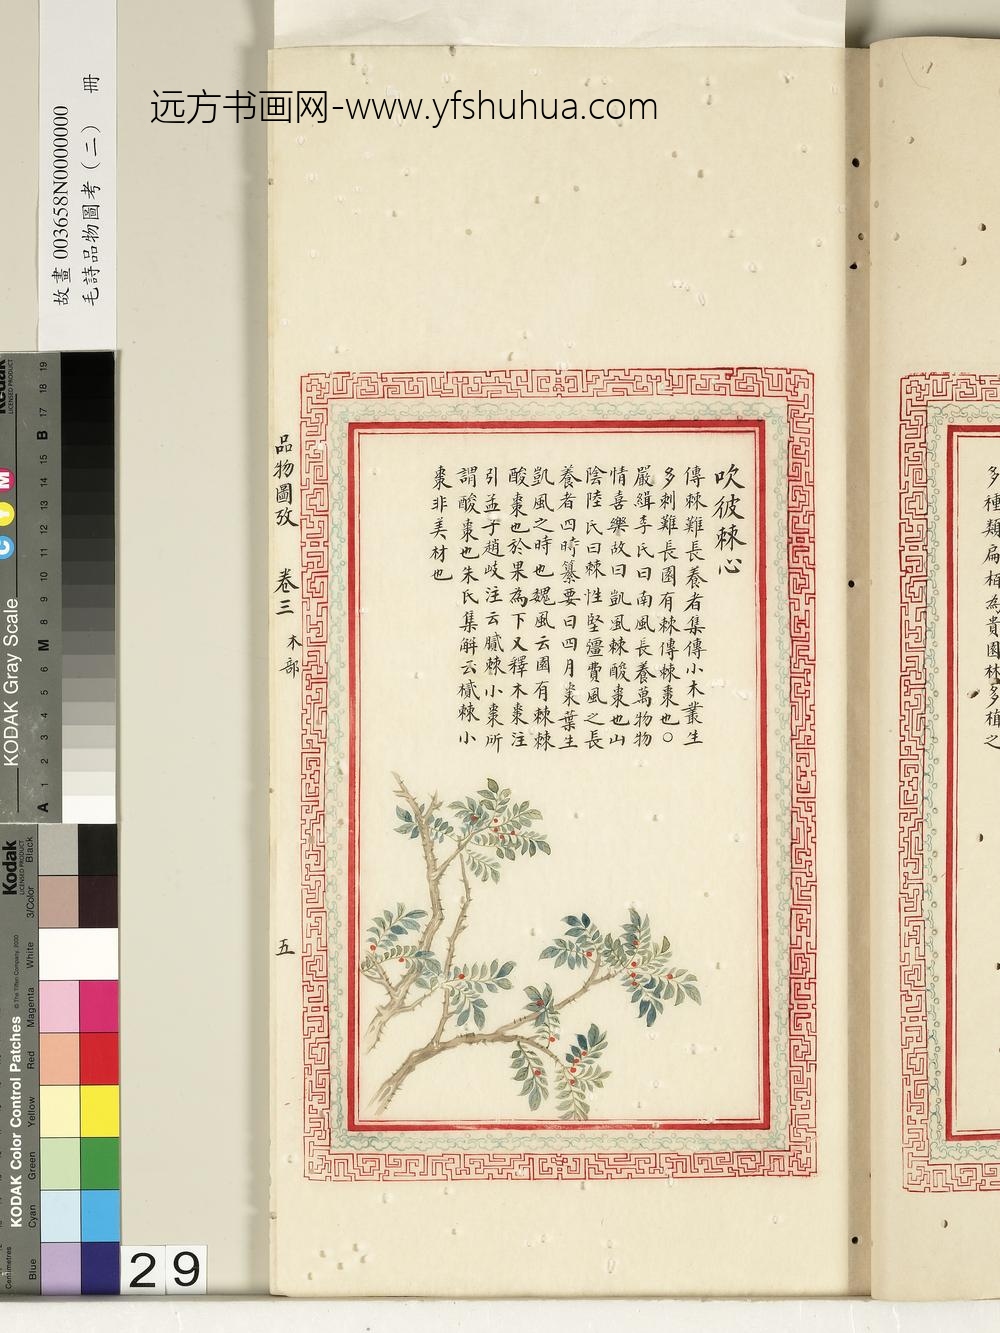 远方书画网-www.yfshuhua.com
故畫 003658N0000000
毛詩品物圖考（二） 冊
吹彼棘心
傳棘難長養者集傳小木叢生
多刺難長園有棘傳棘棗也○
嚴緝李氏曰南風長養萬物物
情喜樂故曰凱風棘酸棗也山
陰陸氏曰棘性堅彊費風之長
養者四時纂要曰四月棗葉生
凱風之時也魏風云園有棘棘
酸棗也於果為下又釋木棗注
引孟子趙岐注云樲棘小棗所
謂酸棗也朱氏集解云樲棘小
棗非美材也
品物圖攷 卷三 木部 五
多種類扁桓為貴園林多植之
KODAK Gray Scale
Kodak
LICENSED PRODUCT
C Y M
A 1 2 3 4 5 6 M 8 9 10 11 12 13 14 15 B 17 18 19
KODAK Color Control Patches
© The Tiffen Company, 2000
Kodak
LICENSED PRODUCT
Centimetres
Blue
Cyan
Green
Yellow
Red
Magenta
White
3/Color
Black
29